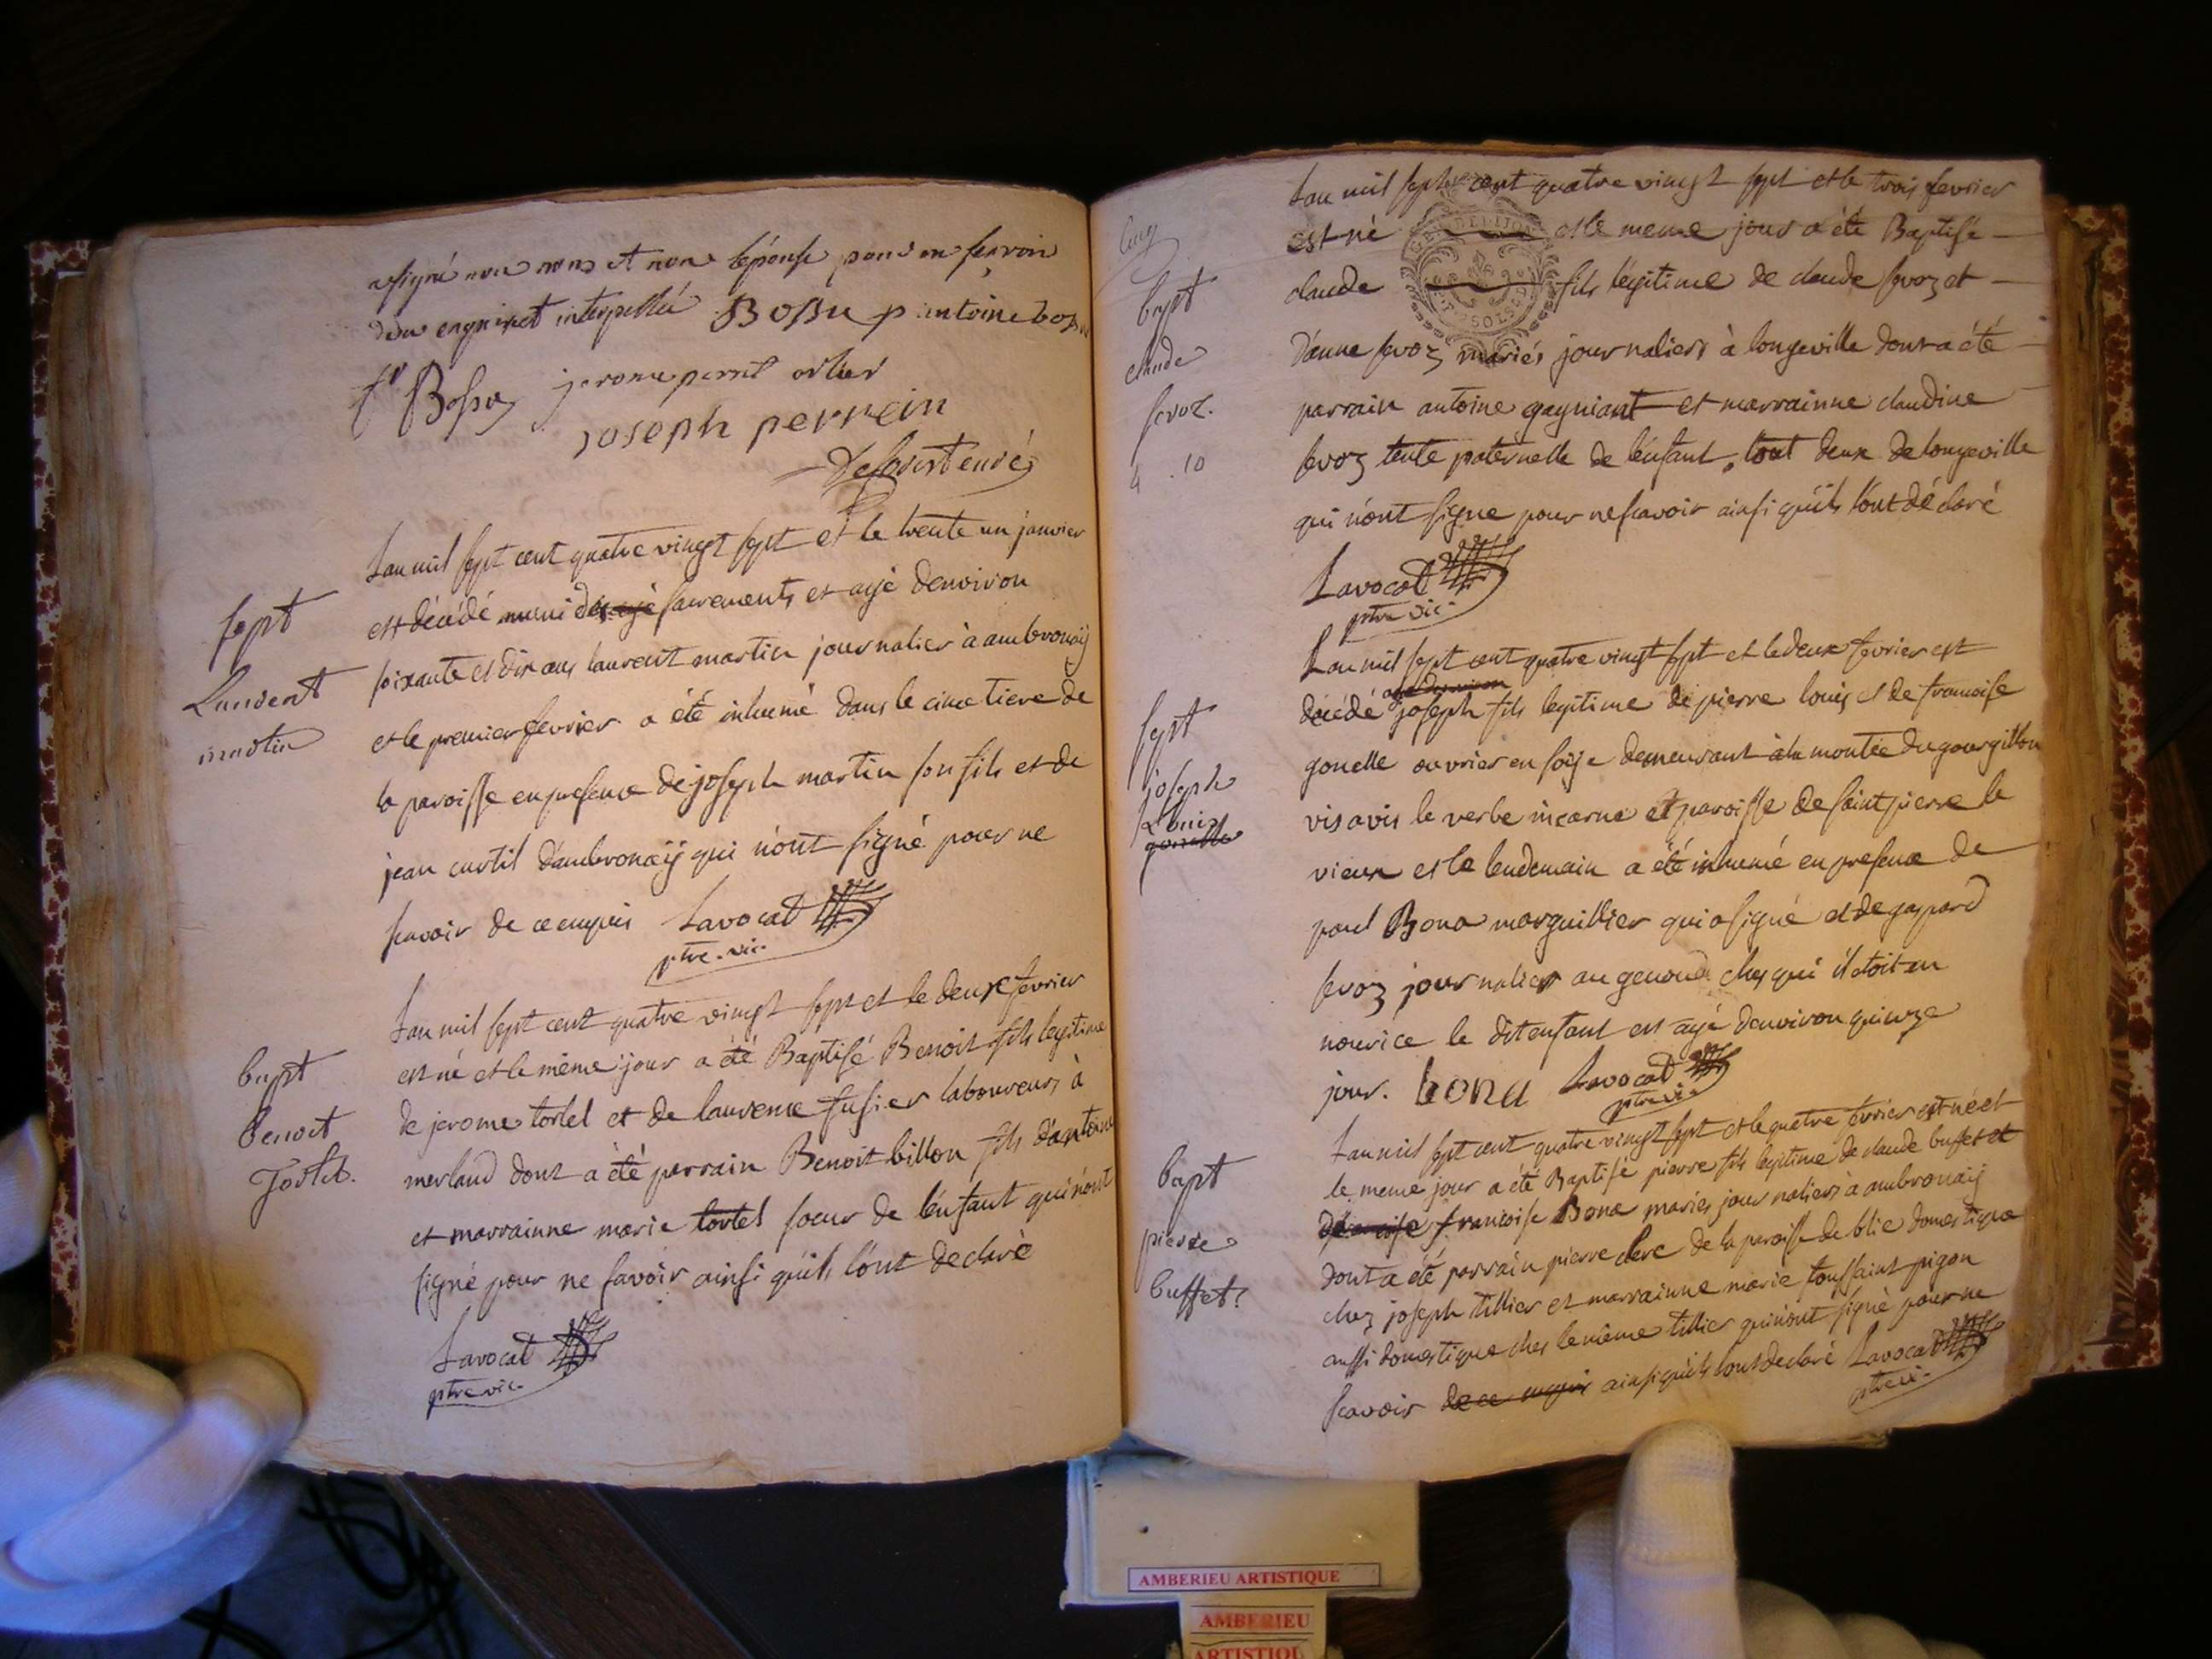 a signé non nons et non l'épouse pour ne scavoir
de ce enquis et interpellée Bossu p antoine bossu
fr Bossu jerome perret ortier
joseph perrein
Decourt curé
L'an mil sept cent quatre vingt sept et le trente un janvier
est décédé muni des agé sacrements et agé d'environ
soixante et dix ans laurent martin journalier à ambronaÿ
et le premier fevrier a été inhumé dans le cimetiere de
la paroisse en presence de joseph martin son fils et de
jean curtil d'ambronaÿ qui n'ont signé pour ne
scavoir de ce enquis Lavocat
ptre. vic.
sept
Laurent
martin
L'an mil sept cent quatre vingt sept et le deux fevrier
est né et le même jour a été Baptisé Benoit fils legitime
de jerome tortel et de laurence fusier laboureurs à
merland dont a été parrain Benoit billon fils d'antoine
et marrainne marie tortel soeur de l'enfant qui n'ont
signé pour ne savoir ainsi qu'ils l'ont declaré
Lavocat
ptre vic.
bapt
benoit
Tortel.
L'an mil sept cent quatre vingt sept et le trois fevrier
est né et le meme jour a été Baptisé
claude fils légitime de claude sevoz et
d'anne sevoz mariés journaliers à longeville dont a été
parrain antoine gagniant et marrainne claudine
sevoz tente paternelle de l'enfant, tout deux de longeville
qui n'ont signe pour ne scavoir ainsi qu'ils l'ont déclaré
Lavocat
ptre vic.
bapt
claude
sevoz.
4 . 10
L'an mil sept cent quatre vingt sept et le deux fevrier est
décédé agé d'environ joseph fils legitime de pierre louis et de francoise
gonelle ouvrier en soije demeurant à la montée du gourgillon
vis a vis le verbe incarne et paroisse de saint pierre le
vieux et le lendemain a été inhumé en presence de
paul Bona marguillier qui a signé et de gaspard
sevoz journalier au genoud chez qui il étoit en
nourice le dit enfant est agé d'environ quinze
jour. bona Lavocat
ptre vic
sept
joseph
Louis
gonelle
L'an mil sept cent quatre vingt sept et le quatre fevrier est né et
le meme jour a été Baptisé pierre fils legitime de claude buffet et
francoise Bona mariés journaliers à ambronaÿ
dont a été parrain pierre clerc de la paroisse de blie domestique
chez joseph tillier et marrainne marie toussaint pigon
aussi domestique chez le même tillier qui n'ont signé pour ne
scavoir de ce enquis ainsi qu'ils l'ont declaré Lavocat
ptre vic.
bapt
pierre
buffet.
AMBERIEU ARTISTIQUE
AMBERIEU
ARTISTIQU